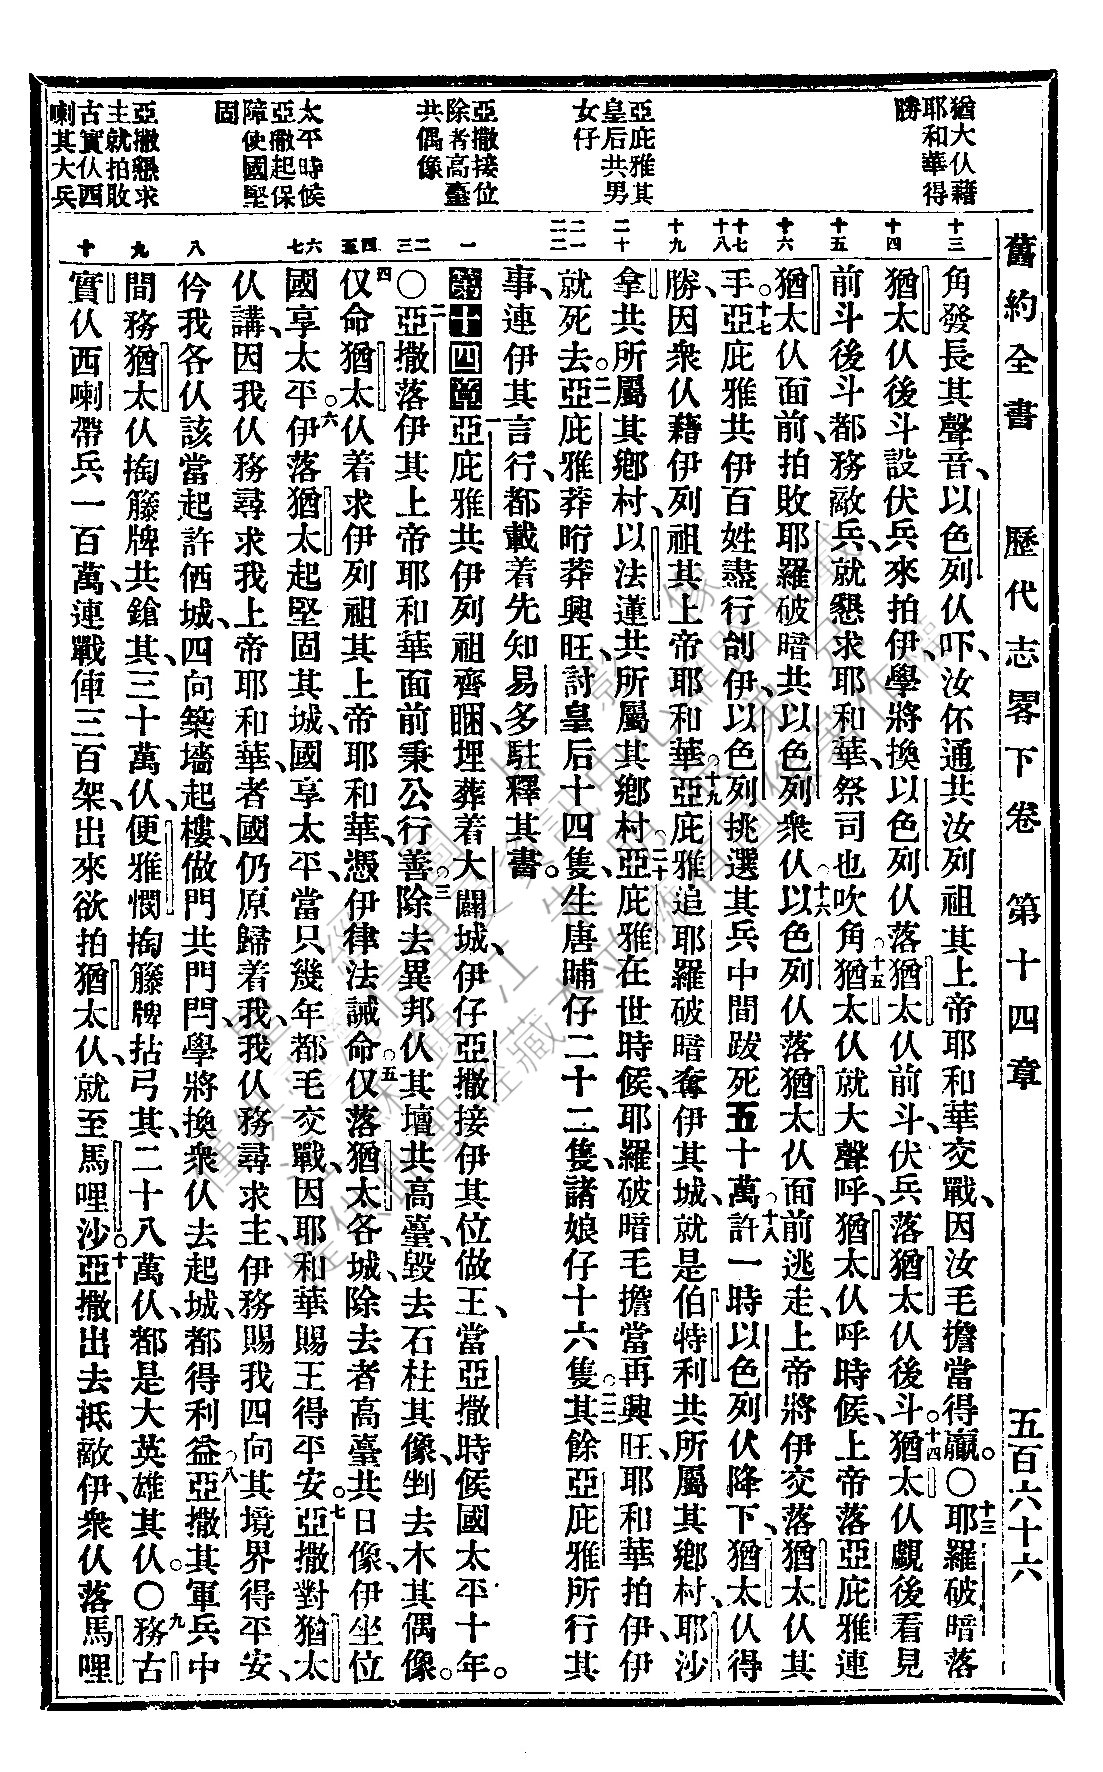 舊約全書 歷代志畧下卷 第十四章 五百六十六
猶大仈藉
耶和華得
勝
亞庇雅其
皇后共男
女仔
亞撒接位
除者高臺
共偶像
太平時候
亞撒起保
障使國堅
固
亞撒懇求
主就拍敗
古實仈西
喇其大兵
十三 角發長其聲音、以色列仈吓、汝伓通共汝列祖其上帝耶和華交戰、因汝毛擔當得贏。〇十三耶羅破暗落
十四 猶太仈後斗設伏兵來拍伊、學將換以色列仈落猶太仈前斗、伏兵落猶太仈後斗。十四猶太仈覷後看見
十五 前斗後斗都務敵兵、就懇求耶和華、祭司也吹角。十五猶太仈就大聲呼、猶太仈呼時候、上帝落亞庇雅連
十六 猶太仈面前、拍敗耶羅破暗共以色列衆仈。十六以色列仈落猶太仈面前逃走、上帝將伊交落猶太仈其
十七 十八 手。十七亞庇雅共伊百姓盡行刣伊、以色列挑選其兵中間跋死五十萬。十八許一時以色列伏降下、猶太仈得
十九 勝、因衆仈藉伊列祖其上帝耶和華。十九亞庇雅追耶羅破暗、奪伊其城、就是伯特利共所屬其鄉村、耶沙
二十 拿共所屬其鄉村、以法蓮共所屬其鄉村。二十亞庇雅在世時候、耶羅破暗毛擔當再興旺、耶和華拍伊、伊
二一 二二 就死去。二一亞庇雅莽昕莽興旺、討皇后十四隻、生唐晡仔二十二隻、諸娘仔十六隻。二二其餘亞庇雅所行其
事、連伊其言行、都載着先知易多駐釋其書。
一 第十四章 一亞庇雅共伊列祖齊睏、埋葬着大闢城、伊仔亞撒接伊其位做王、當亞撒時候國太平十年。
二 三 〇二亞撒落伊其上帝耶和華面前秉公行善。三除去異邦仈其壇共高臺、毀去石柱其像、剉去木其偶像。
四 五 四仅命猶太仈着求伊列祖其上帝耶和華、憑伊律法誡命。五仅落猶太各城、除去者高臺共日像、伊坐位
六 七 國享太平。六伊落猶太起堅固其城、國享太平、當只幾年都毛交戰、因耶和華賜王得平安。七亞撒對猶太
仈講、因我仈務尋求我上帝耶和華、者國仍原歸着我、我仈務尋求主、伊務賜我四向其境界得平安、
八 仱我各仈該當起許侕城、四向築墻起樓、做門共門閂、學將換衆仈去起城、都得利益。八亞撒其軍兵中
九 間務猶太仈掏籐牌共鎗其、三十萬仈、便雅憫掏籐牌拈弓其、二十八萬仈、都是大英雄其仈。〇九務古
十 實仈西喇帶兵一百萬、連戰俥三百架、出來欲拍猶太仈、就至馬哩沙。十亞撒出去抵敵伊、衆仈落馬哩